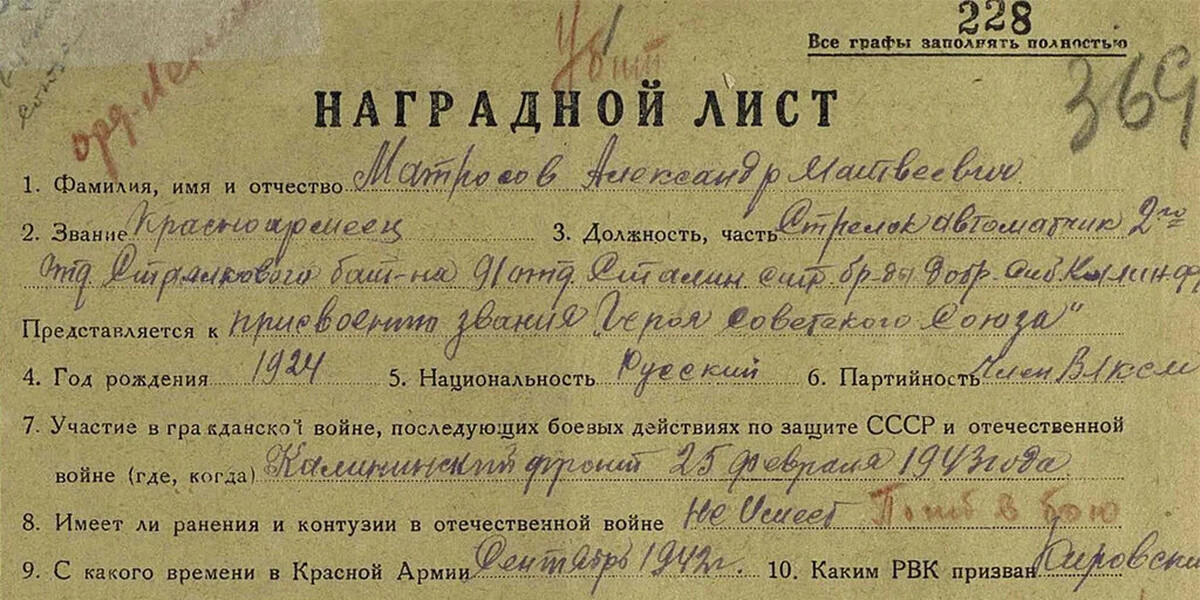 228
Все графы заполнять полностью
Убит
369
орд. Ленина
НАГРАДНОЙ ЛИСТ
1. Фамилия, имя и отчество Матросов Александр Матвеевич
2. Звание Красноармеец 3. Должность, часть Стрелок автоматчик 2го
отд. Стрелкового бат-на 91 отд. Сталин стр. бр-ды добр. Сиб.
Представляется к присвоению звания "Героя Советского Союза"
4. Год рождения 1924 5. Национальность Русский 6. Партийность Член ВЛКСМ
7. Участие в гражданской войне, последующих боевых действиях по защите СССР и отечественной
войне (где, когда) Калининский фронт 25 февраля 1943 года
8. Имеет ли ранения и контузии в отечественной войне Не Имеет Погиб в бою
9. С какого времени в Красной Армии Сентябрь 1942 г. 10. Каким РВК призван Кировски